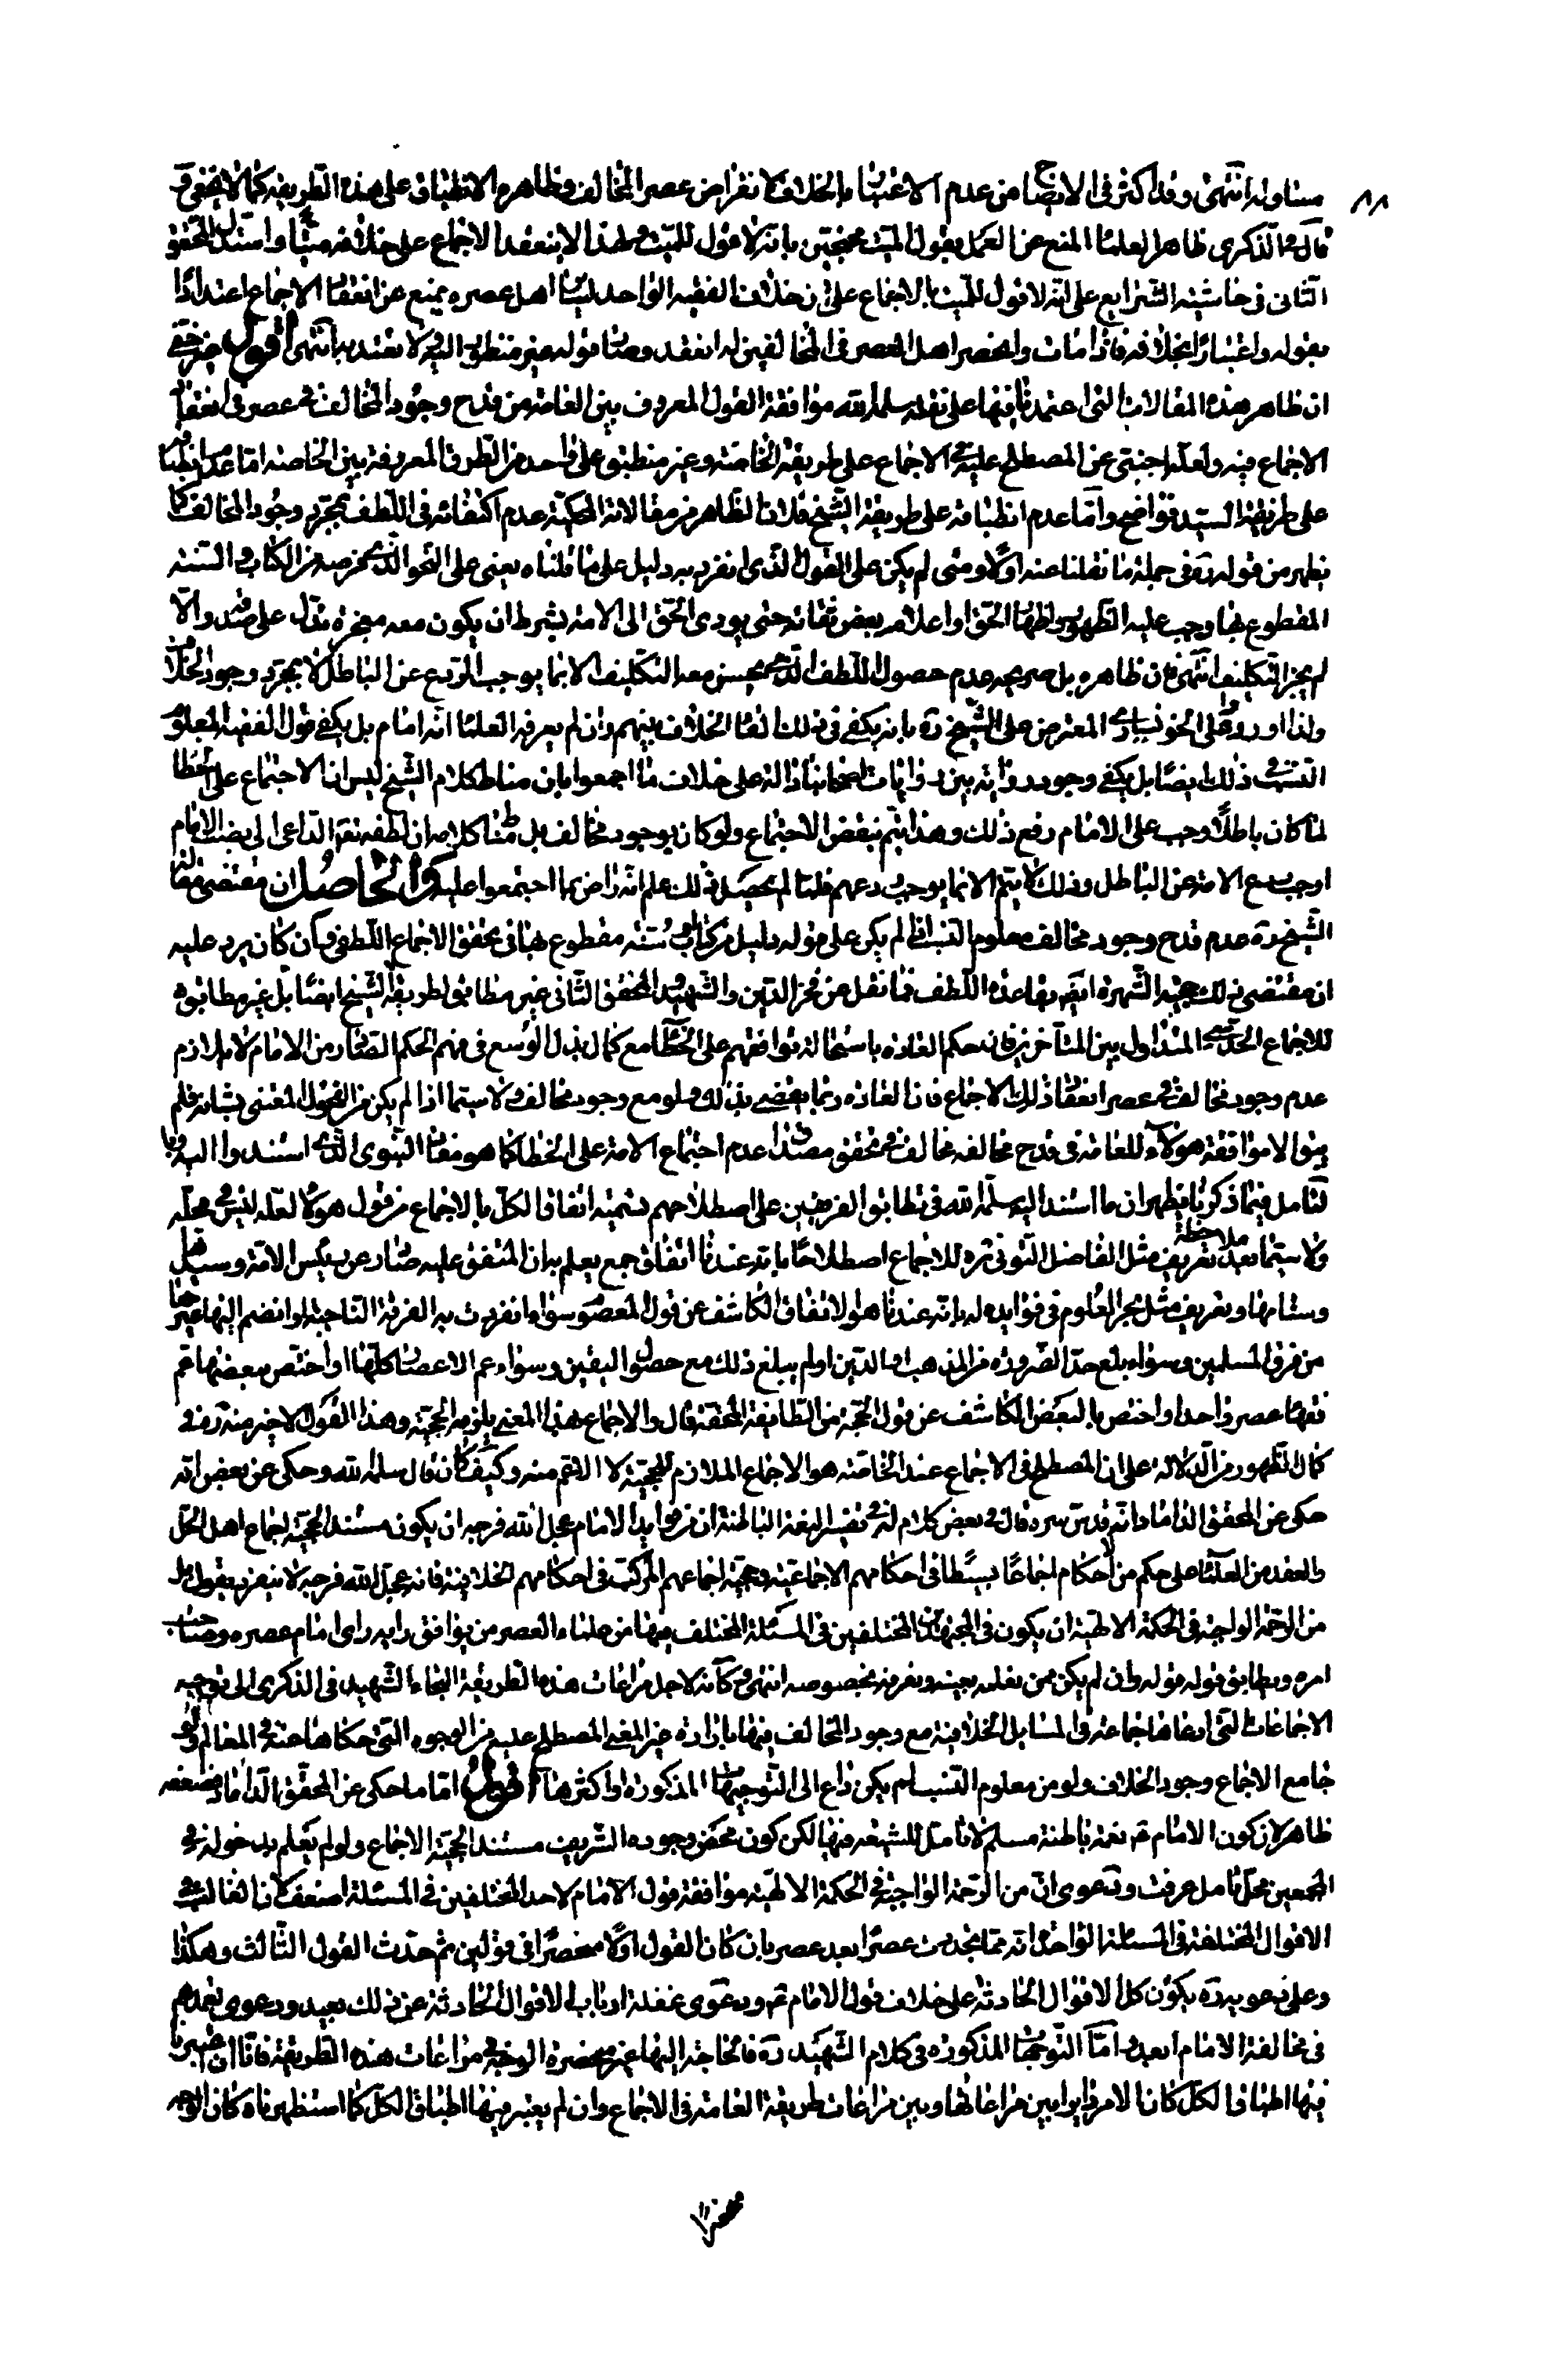 ٨٨
متناوله انتهى وقد اكثر في الايضاح من عدم الاعتناء بالخلاف لانقراض عصر المخالف وظاهره الانطباق على هذه الطريقة كما لا يخفى وقد
قال في الذكرى ظاهر العلماء المنع عن العمل بقول الميت محتجين بانه لا قول للميت ولهذا لا ينعقد الاجماع على خلافه ميتا واستدل المحقق
الثاني في حاشية الشرايع على انه لا قول للميت بالاجماع على ان خلاف الفقيه الواحد لسائر اهل عصره يمنع عن انعقاد الاجماع اعتدادا
بقوله واعتبارا بخلافه فاذا مات وانحصر اهل العصر في المخالفين له انعقد وصار قوله غير منظور اليه ولا يعتد به انتهى اقول غير خفي
ان ظاهر هذه المقالات التي اعتمدنا فيها على نقله سلمه الله موافقة القول المعروف بين العامة من قدح وجود المخالف في عصر في انعقاد
الاجماع فيه ولعله اجنبي عن المصطلح عليه في الاجماع على طريقة الخاصة وغير منطبق على واحد من الطرق المعروفة بين الخاصة اما عدم انطباقه
على طريقة السيد فواضح واما عدم انطباقه على طريقة الشيخ فلان الظاهر من مقالاته المحكية عدم اكتفائه في اللطف بمجرد وجود المخالف كما
يظهر من قوله ره في جملة ما نقلنا عنه اولا ومتى لم يكن على القول الذي انفرد به دليل على ما قلناه يعني على النحو الذي مر من الكتاب والسنة
المقطوع بها وجب عليه الظهور واظهار الحق او اعلام بعض ثقاته حتى يودي الحق الى الامة بشرط ان يكون معه معجزة تدل على صدقه والا
لم يجز التكليف انتهى فان ظاهره بل صريحه عدم حصول اللطف الذي يحسن معه التكليف الا بما يوجب الردع عن الباطل لا بمجرد وجود الخلاف
ولذا اورد المعترض على الشيخ ره بانه يكفي في ذلك القاء الخلاف بينهم وان لم يعرفه العلماء انه امام بل يكفي قول الفقيه المعلوم
النسب في ذلك ايضا بل يكفي وجود رواية بين روايات اصحابنا دالة على خلاف ما اجمعوا بان مناط كلام الشيخ ليس ان الاجتماع على الخطا
لما كان باطلا وجب على الامام رفع ذلك وهذا يتم بنقض الاجتماع ولو كان بوجود مخالف بل مناط كلامه ان لطفه تعالى الداعي الى نصب الامام
اوجب ردع الامة عن الباطل وذلك لا يتم الا بما يوجب ردعهم فلما لم يحصل ذلك علم انه راض بما اجتمعوا عليه والحاصل ان مقتضى مقالة
الشيخ ره عدم قدح وجود مخالف معلوم النسب اذا لم يكن على قوله دليل من كتاب او سنة مقطوع بها في تحقق الاجماع اللطفي وان كان يرد عليه
ان مقتضى ذلك حجية الشهرة ايضا بقاعدة اللطف فما نقل عن فخر الدين والشهيد والمحقق الثاني غير مطابق لطريقة الشيخ ايضا بل غير مطابق
للاجماع الحدسي المتداول بين المتأخرين فان حكم العادة باستحالة توافقهم على الخطأ مع كمال بذل الوسع في فهم الحكم الصادر من الامام لا يلازم
عدم وجود مخالف في عصر انعقاد ذلك الاجماع فان العادة ربما يقضى بذلك ولو مع وجود مخالف ولا سيما اذا لم يكن من الفحول المعتنى بشانه فلم
يبق الا موافقة هؤلاء للعامة في قدح مخالفة مخالف في تحقق مصداق عدم اجتماع الامة على الخطا كما هو مفاد النبوي الذي استندوا اليه وبما
لتأمل فيما ذكرنا يظهر ان ما استند اليه سلمه الله في تطابق الفريقين على اصطلاحهم تسمية اتفاق الكل بالاجماع من قول هؤلاء لعله ليس في محله
ولا سيما بعد ملاحظة تعريف مثل الفاضل التوني ره للاجماع اصطلاحا بانه عندنا اتفاق جمع يعلم به ان المتفق عليه صادر عن رئيس الامة وسيد اهل
وسنامها وتعريف مثل بحر العلوم في فوايده له بانه عندنا هو الاتفاق الكاشف عن قول المعصوم سواء انفردت به الفرقة الناجية او انضم اليها غيرها
من فرق المسلمين وسواء بلغ حد الضرورة من المذهب او الدين او لم يبلغ ذلك مع حصول اليقين وسواء عم الاعصار كلها او اختص ببعضها عم
فقهاء عصر واحد او اختص بالبعض الكاشف عن قول الحجة من الطايفة المحقة قال والاجماع بهذا المعنى يلزمه الحجية وهذا القول الاخير منه ره في
كمال الظهور من الدلالة على ان المصطلح في الاجماع عند الخاصة هو الاجماع الملازم للحجية لا الاعم منه وكيف كان قال سلمه الله وحكى عن بعض انه
حكى عن المحقق الداماد انه قدس سره قال في بعض كلام له في تفسير النعمة الباطنة ان من فوايد الامام عجل الله فرجه ان يكون مستند الحجية اجماع اهل الحل
والعقد من العلماء على حكم من الاحكام اجماعا بسيطا في احكامهم الاجماعية وحجية اجماعهم المركب في احكامهم الخلافية فانه عجل الله فرجه لا ينفرد بقول بل
من الرحمة الواجبة في الحكمة الالهية ان يكون في المجتهدين المختلفين في المسئلة المختلف فيها من علماء العصر من يوافق رايه راى امام عصره وصاحب
امره ويطابق قوله قوله وان لم يكن ممن نعلمه بعينه ونعرفه بخصوصه انتهى وكأنه لاجل مراعات هذه الطريقة التجاء الشهيد في الذكرى الى توجيه
الاجماعات التي ادعاها جماعة في المسايل الخلافية مع وجود المخالف فيها بارادة غير المعنى المصطلح عليه من الوجوه التي حكاها عنه في المعالم ولو
جامع الاجماع وجود الخلاف ولو من معلوم النسب لم يكن داع الى التوجيهات المذكورة او اكثرها اقول اما ما حكى عن المحقق الداماد فضعفه
ظاهر لان كون الامام ع نعمة باطنة مسلم لا تامل للشيعة فيها لكن كون محض وجوده الشريف مستند الحجية الاجماع ولو لم يعلم بدخوله في
المجمعين محل تامل عرفت ودعوى ان من الرحمة الواجبة في الحكمة الالهية موافقة قول الامام لاحد المختلفين في المسئلة اضعف لان الغالب في
الاقوال المختلفة في المسئلة الواحدة انه مما يتجدد عصرا بعد عصر بان كان القول اولا منحصرا في قولين ثم حدث القول الثالث وهكذا
وعلى دعويه ره يكون كل الاقوال الحادثة على خلاف قول الامام ع ودعوى غفلة ارباب الاقوال الحادثة عن ذلك بعيد ودعوى تعمدهم
في مخالفة الامام ابعد واما التوجيهات المذكورة في كلام الشهيد ره فالحاجة اليها غير منحصرة الوجه في مراعات هذه الطريقة فانا ان اعتبرنا
فيها اطباق الكل كان الامر دايرا بين مراعاتها وبين مراعات طريقة العامة في الاجماع وان لم يعتبر فيها اطباق الكل كما استظهرناه كان الوجه